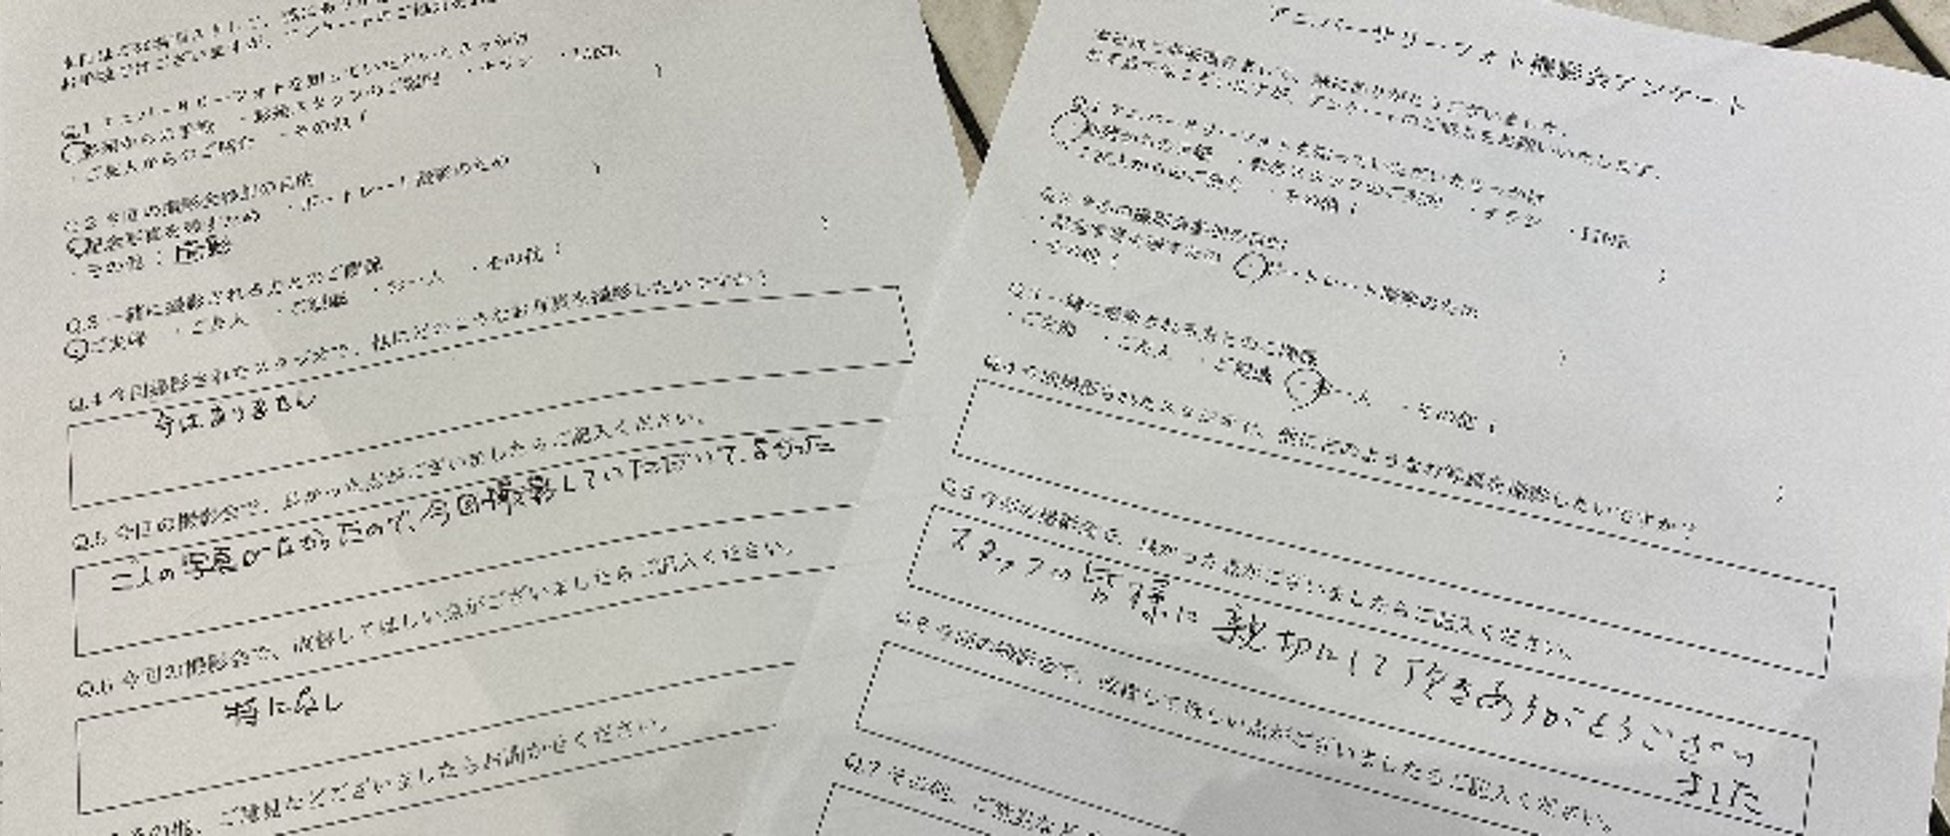 お手数ではございますが、アンケートのご協力をお願いいたします。
Q.1 アニバーサリーフォトを知っていただいたきっかけ
・ご友人からのご紹介 ・その他（
Q.2 今回の撮影会参加の目的
・記念写真を残すため ・ポートレート撮影のため
・その他（
Q.3 一緒に撮影される方とのご関係
・ご夫婦 ・ご友人 ・ご親族 ・お一人 ・その他（ ）
Q.4 今回撮影されたスタジオで、他にどのようなお写真を撮影したいですか？
今はありません
Q.5 今回の撮影会で、良かった点がございましたらご記入ください。
二人の写真がなかったので、今回撮影していただいて、よかった
Q.6 今回の撮影会で、改善してほしい点がございましたらご記入ください。
特になし
その他、ご意見などございましたらお聞かせください。
アニバーサリーフォト撮影会アンケート
お手数ではございますが、アンケートのご協力をお願いいたします。
Q.1 アニバーサリーフォトを知っていただいたきっかけ
・ご友人からのご紹介 ・その他（ ）
Q.2 今回の撮影会参加の目的
・記念写真を残すため ・ポートレート撮影のため
・その他（ ）
Q.3 一緒に撮影される方とのご関係
・ご夫婦 ・ご友人 ・ご親族 ・お一人 ・その他（ ）
Q.4 今回撮影されたスタジオで、他にどのようなお写真を撮影したいですか？
Q.5 今回の撮影会で、良かった点がございましたらご記入ください。
スタッフの皆様に親切にして頂きありがとうござい
ました
Q.6 今回の撮影会で、改善してほしい点がございましたらご記入ください。
Q.7 その他、ご意見など